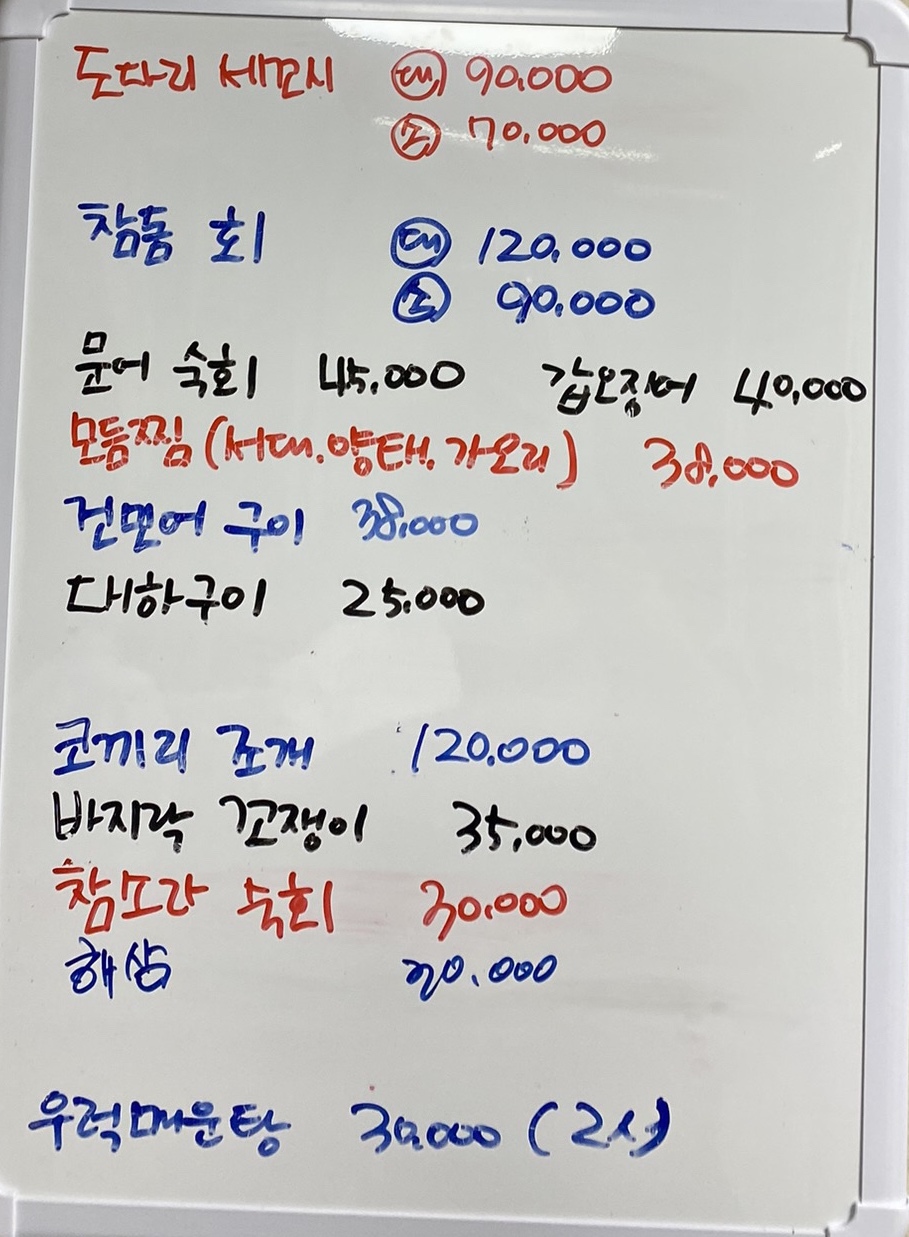 도다리 세꼬시 (대) 90.000
(소) 70.000
참돔 회 (대) 120.000
(소) 90.000
문어 숙회 45,000 갑오징어 40,000
모듬찜 (서대.양태.가오리) 38,000
건민어 구이 38,000
대하구이 25.000
코끼리 조개 120.000
바지락 꼬쟁이 35,000
참소라 숙회 30.000
해삼 20.000
우럭매운탕 30.000 (2人)